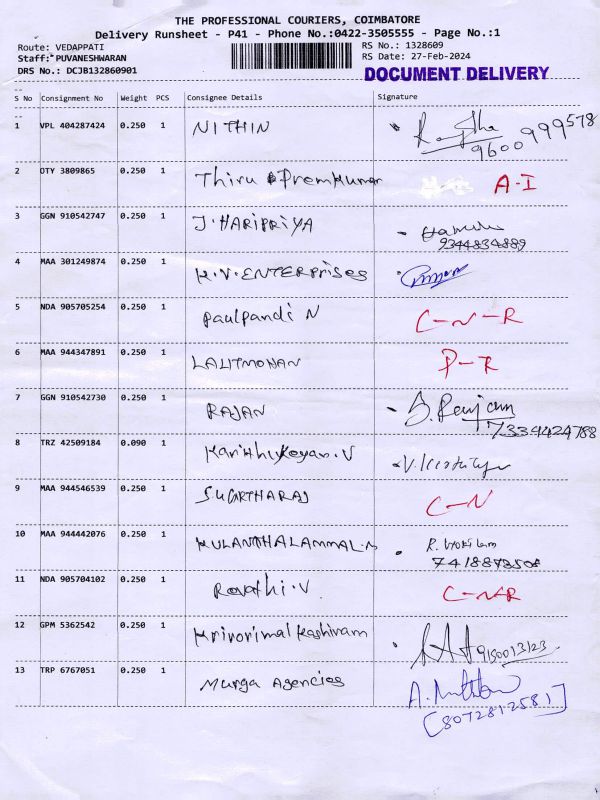 THE PROFESSIONAL COURIERS, COIMBATORE
Delivery Runsheet - P41 - Phone No.:0422-3505555 - Page No.:1
Route: VEDAPPATI RS No.: 1328609
Staff: PUVANESHWARAN RS Date: 27-Feb-2024
DRS No.: DCJB132860901 DOCUMENT DELIVERY
S No Consignment No Weight PCS Consignee Details Signature
1 VPL 404287424 0.250 1 NITHIN 9600999578
2 OTY 3809865 0.250 1 Thiru Premkumar A-I
3 GGN 910542747 0.250 1 J.HARIPRIYA
9344834889
4 MAA 301249874 0.250 1 K.V.ENTERPrises
5 NDA 905705254 0.250 1 Paulpandi N C-N-R
6 MAA 944347891 0.250 1 LALITMOHAN P-R
7 GGN 910542730 0.250 1 RAJAN
7339424788
8 TRZ 42509184 0.090 1 Karthikeyan.V
9 MAA 944546539 0.250 1 C-N
10 MAA 944442076 0.250 1 KULANTHALAMMAL.M
11 NDA 905704102 0.250 1 Revathi.V C-NR
12 GPM 5362542 0.250 1 9150013123
13 TRP 6767051 0.250 1 Murga Agencies
[8072812581]